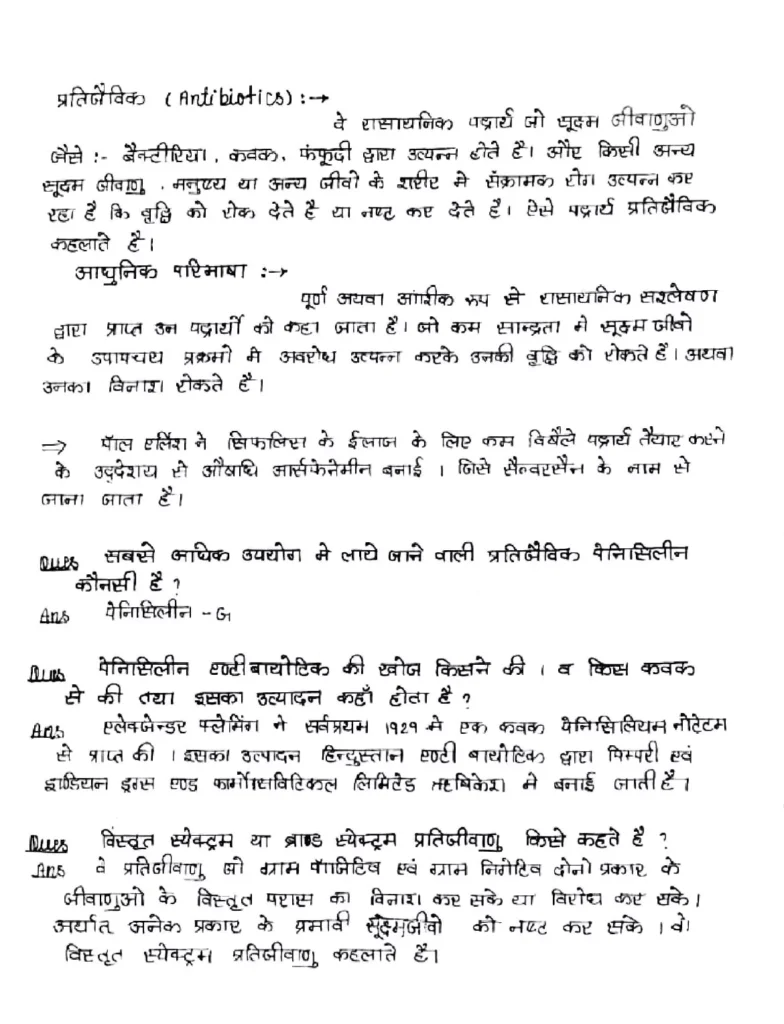 प्रतिजैविक (Antibiotics) :→
वे रासायनिक पदार्थ जो सूक्ष्म जीवाणुओ
जैसे :- बैक्टीरिया, कवक, फंफूदी द्वारा उत्पन्न होते है। और किसी अन्य
सूक्ष्म जीवाणु, मनुष्य या अन्य जीवो के शरीर मे संक्रामक रोग उत्पन्न कर
रहा है कि वृद्धि को रोक देते है या नष्ट कर देते है। ऐसे पदार्थ प्रतिजैविक
कहलाते है।
आधुनिक परिभाषा :→
पूर्ण अथवा आंशीक रूप से रासायनिक सश्लेषण
द्वारा प्राप्त उन पदार्थो को कहा जाता है। जो कम सान्द्रता मे सूक्ष्म जीवो
के उपापचय प्रक्रमो मे अवरोध उत्पन्न करके उनकी वृद्धि को रोकते है। अथवा
उनका विनाश रोकते है।
⇒ पॉल एर्लिश ने सिफलिस के ईलाज के लिए कम विषैले पदार्थ तैयार करने
के उद्देशय से औषधि आर्सफेनेमीन बनाई । जिसे सैल्वरसैन के नाम से
जाना जाता है।
Ques सबसे अधिक उपयोग मे लाये जाने वाली प्रतिजैविक पेनिसिलीन
कौनसी है ?
Ans पेनिसिलीन - G
Ques पेनिसिलीन एण्टीबायोटिक की खोज किसने की । व किस कवक
से की तथा इसका उत्पादन कहाँ होता है ?
Ans एलेक्जेन्डर फ्लेमिंग ने सर्वप्रथम 1929 मे एक कवक पेनिसिलियम नोटेटम
से प्राप्त की । इसका उत्पादन हिन्दुस्तान एण्टी बायोटिक द्वारा पिम्परी एवं
इण्डियन ड्रग्स एण्ड फार्मास्विटिकल लिमिटेड ऋषिकेश मे बनाई जाती है।
Ques विस्तृत स्पेक्ट्रम या ब्राण्ड स्पेक्ट्रम प्रतिजीवाणु किसे कहते है ?
Ans वे प्रतिजीवाणु जो ग्राम पॉजिटिव एवं ग्राम निगेटिव दोनो प्रकार के
जीवाणुओ के विस्तृत परास का विनाश कर सके या विरोध कर सके।
अर्थात् अनेक प्रकार के प्रभावी सूक्ष्मजीवो को नष्ट कर सके । वे
विस्तृत स्पेक्ट्रम प्रतिजीवाणु कहलाते है।